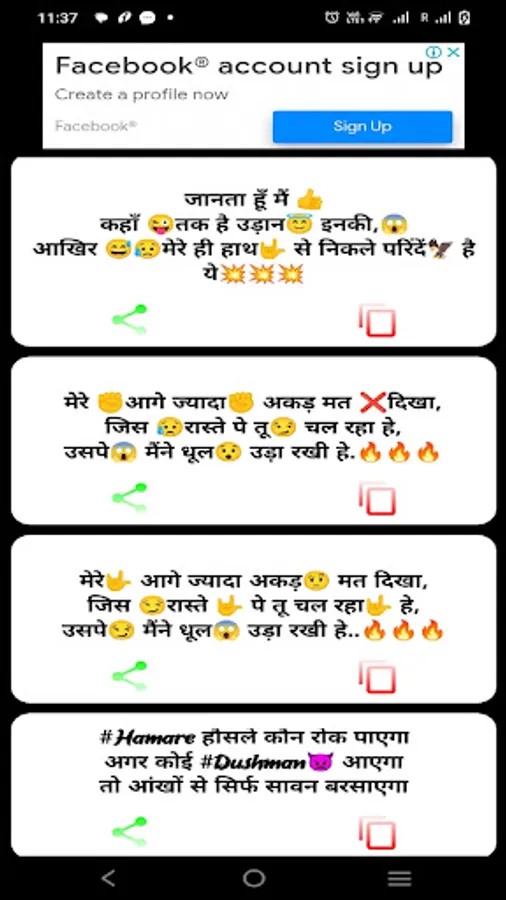 11:37
R
Facebook® account sign up
Create a profile now
Facebook®
Sign Up
जानता हूँ मैं 👍
कहाँ 😜तक है उड़ान😇 इनकी,😱
आखिर 😅😥मेरे ही हाथ🤟 से निकले परिंदें🦅 है
ये💥💥💥
मेरे ✊आगे ज्यादा✊ अकड़ मत ❌दिखा,
जिस 😥रास्ते पे तू😏 चल रहा हे,
उसपे😱 मैंने धूल😯 उड़ा रखी हे.🔥🔥🔥
मेरे🤟 आगे ज्यादा अकड़🤨 मत दिखा,
जिस 😏रास्ते 🤟 पे तू चल रहा🤟 हे,
उसपे😏 मैंने धूल😱 उड़ा रखी हे..🔥🔥🔥
#Hamare हौसले कौन रोक पाएगा
अगर कोई #Dushman😈 आएगा
तो आंखों से सिर्फ सावन बरसाएगा